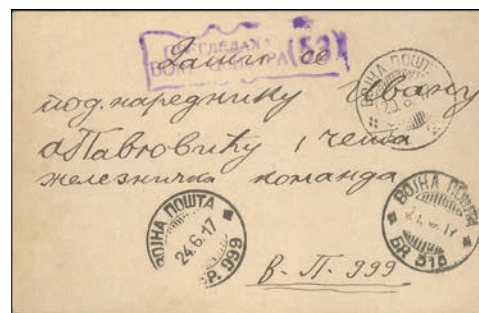 ПРЕГЛЕДАНО (53)
ВОЈ. ЦЕНЗУРА
се
под. нареднику Ивану
Павловићу, чета
железничка команда
ВОЈНА ПОШТА
ВОЈНА ПОШТА
24.6.17
БР. 999
ВОЈНА ПОШТА
БР 516
В. П. 999